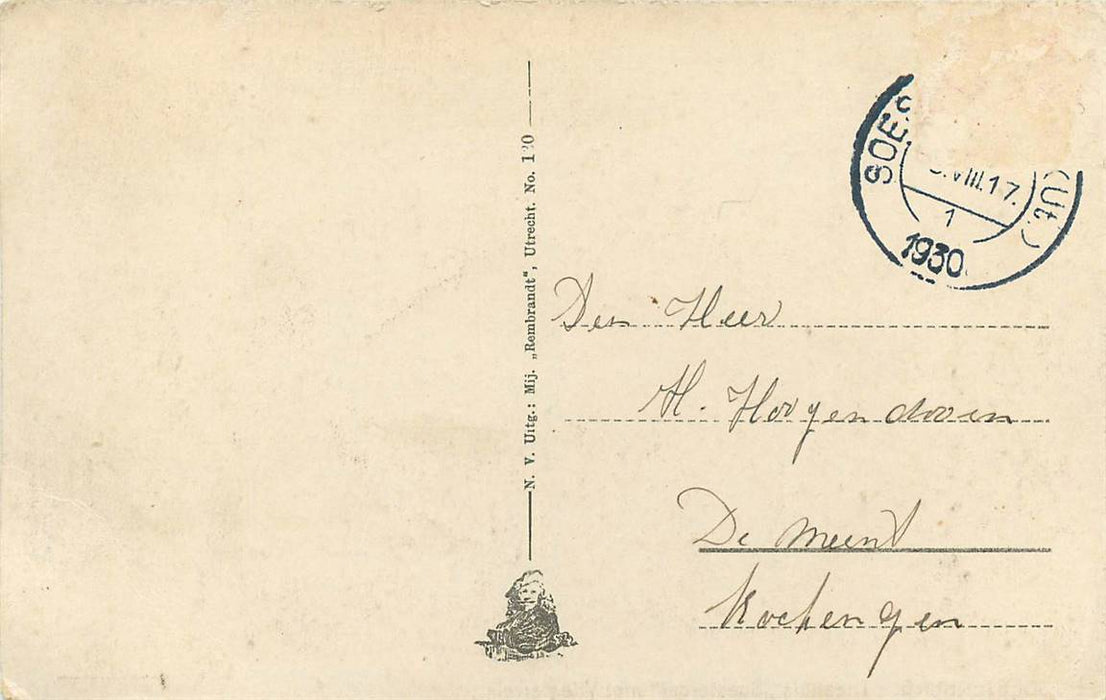 N. V. Uitg.: Mij. „Rembrandt", Utrecht. No. 120
SOE (Ut.)
VIII.17.
1
1930
Den Heer
H. Hoogendoorn
De Meent
Kockengen